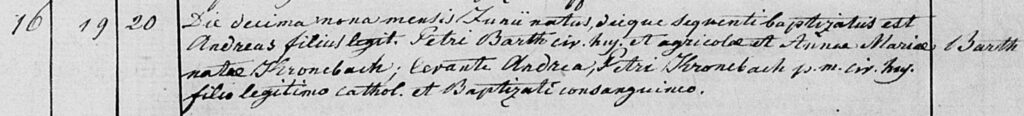 16 19 20 Die decima nona mensis Junii natus, dieque sequenti baptizatus est
Andreas filius legit. Petri Barth civ. huj. et agricolæ et Annæ Mariæ Barth
natæ Kronebach; levante Andrea, Petri Kronebach p. m. civ. huj.
filio legitimo cathol. et Baptizati consanguineo.